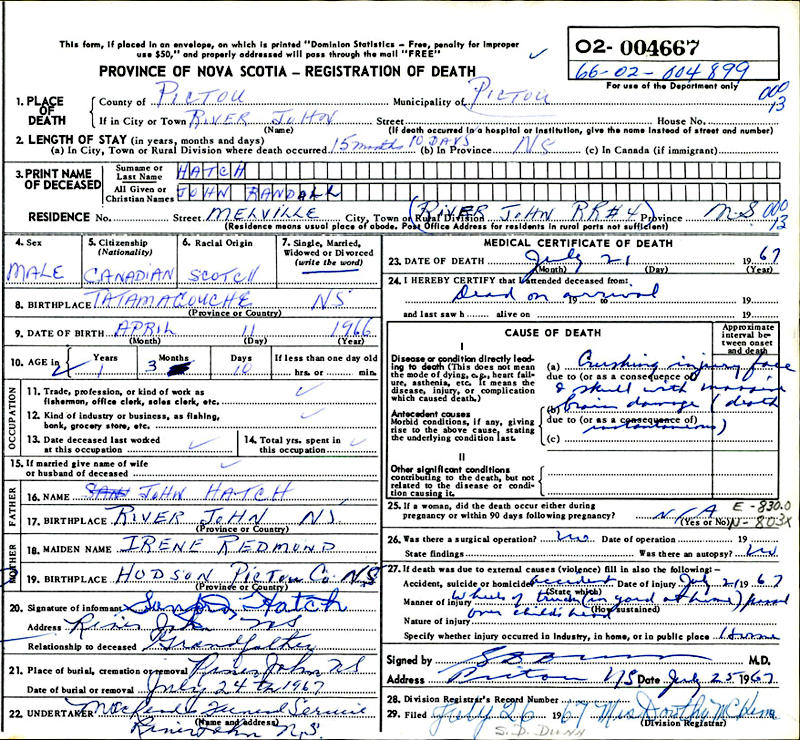 This form, if placed in an envelope, on which is printed "Dominion Statistics — Free, penalty for improper
use $50," and properly addressed will pass through the mail "FREE"
PROVINCE OF NOVA SCOTIA — REGISTRATION OF DEATH
02- 004667
66-02-004899
For use of the Department only
000
13
1. PLACE OF DEATH
County of PICTOU Municipality of PICTOU
If in City or Town RIVER JOHN Street House No.
(Name) (If death occurred in a hospital or institution, give the name instead of street and number)
2. LENGTH OF STAY (in years, months and days)
(a) In City, Town or Rural Division where death occurred 15 months 10 DAYS (b) In Province NS (c) In Canada (if immigrant)
3. PRINT NAME OF DECEASED
Surname or Last Name HATCH
All Given or Christian Names JOHN RANDALL
RESIDENCE No. Street MELVILLE City, Town or Rural Division (RIVER JOHN RR#4) Province N S 000
13
(Residence means usual place of abode. Post Office Address for residents in rural parts not sufficient)
4. Sex
MALE
5. Citizenship (Nationality)
CANADIAN
6. Racial Origin
SCOTCH
7. Single, Married, Widowed or Divorced (write the word)
8. BIRTHPLACE TATAMAGOUCHE NS
(Province or Country)
9. DATE OF BIRTH APRIL 11 1966
(Month) (Day) (Year)
10. AGE in Years Months Days If less than one day old
1 3 10 hrs. or min.
OCCUPATION
11. Trade, profession, or kind of work as fisherman, office clerk, sales clerk, etc.
12. Kind of industry or business, as fishing, bank, grocery store, etc.
13. Date deceased last worked at this occupation
14. Total yrs. spent in this occupation
15. If married give name of wife or husband of deceased
FATHER
16. NAME JOHN HATCH
17. BIRTHPLACE RIVER JOHN NS
(Province or Country)
MOTHER
18. MAIDEN NAME IRENE REDMOND
19. BIRTHPLACE HODSON PICTOU Co. N.S
(Province or Country)
20. Signature of informant Hatch
Address River John NS
Relationship to deceased Grandfather
21. Place of burial, cremation or removal River John NS
Date of burial or removal July 24th 1967
22. UNDERTAKER Funeral Service
(Name and address)
River John N.S.
MEDICAL CERTIFICATE OF DEATH
23. DATE OF DEATH July 21 1967
(Month) (Day) (Year)
24. I HEREBY CERTIFY that I attended deceased from:
Dead on arrival 19 to 19
and last saw h alive on 19
CAUSE OF DEATH
Approximate interval between onset and death
I
Disease or condition directly leading to death (This does not mean the mode of dying, e.g., heart failure, asthenia, etc. It means the disease, injury, or complication which caused death.)
(a) Crushing injury face
due to (or as a consequence of)
& skull with massive
Antecedent causes
Morbid conditions, if any, giving rise to the above cause, stating the underlying condition last.
(b) brain damage (death
due to (or as a consequence of)
instantaneous)
(c)
II
Other significant conditions
contributing to the death, but not related to the disease or condition causing it.
25. If a woman, did the death occur either during pregnancy or within 90 days following pregnancy? N/A
(Yes or No)
E - 830.0
N - 803X
26. Was there a surgical operation? No Date of operation 19
State findings Was there an autopsy? No
27. If death was due to external causes (violence) fill in also the following:—
Accident, suicide or homicide accident Date of injury July 21 1967
(State which)
Manner of injury Wheels of truck (in yard at home) passed
(How sustained)
over child's head
Nature of injury
Specify whether injury occurred in industry, in home, or in public place Home
Signed by M.D.
Address Pictou NS Date July 25 1967
28. Division Registrar's Record Number
29. Filed July 26 1967 Miss Dorothy
(Division Registrar)
S. D. DUNN